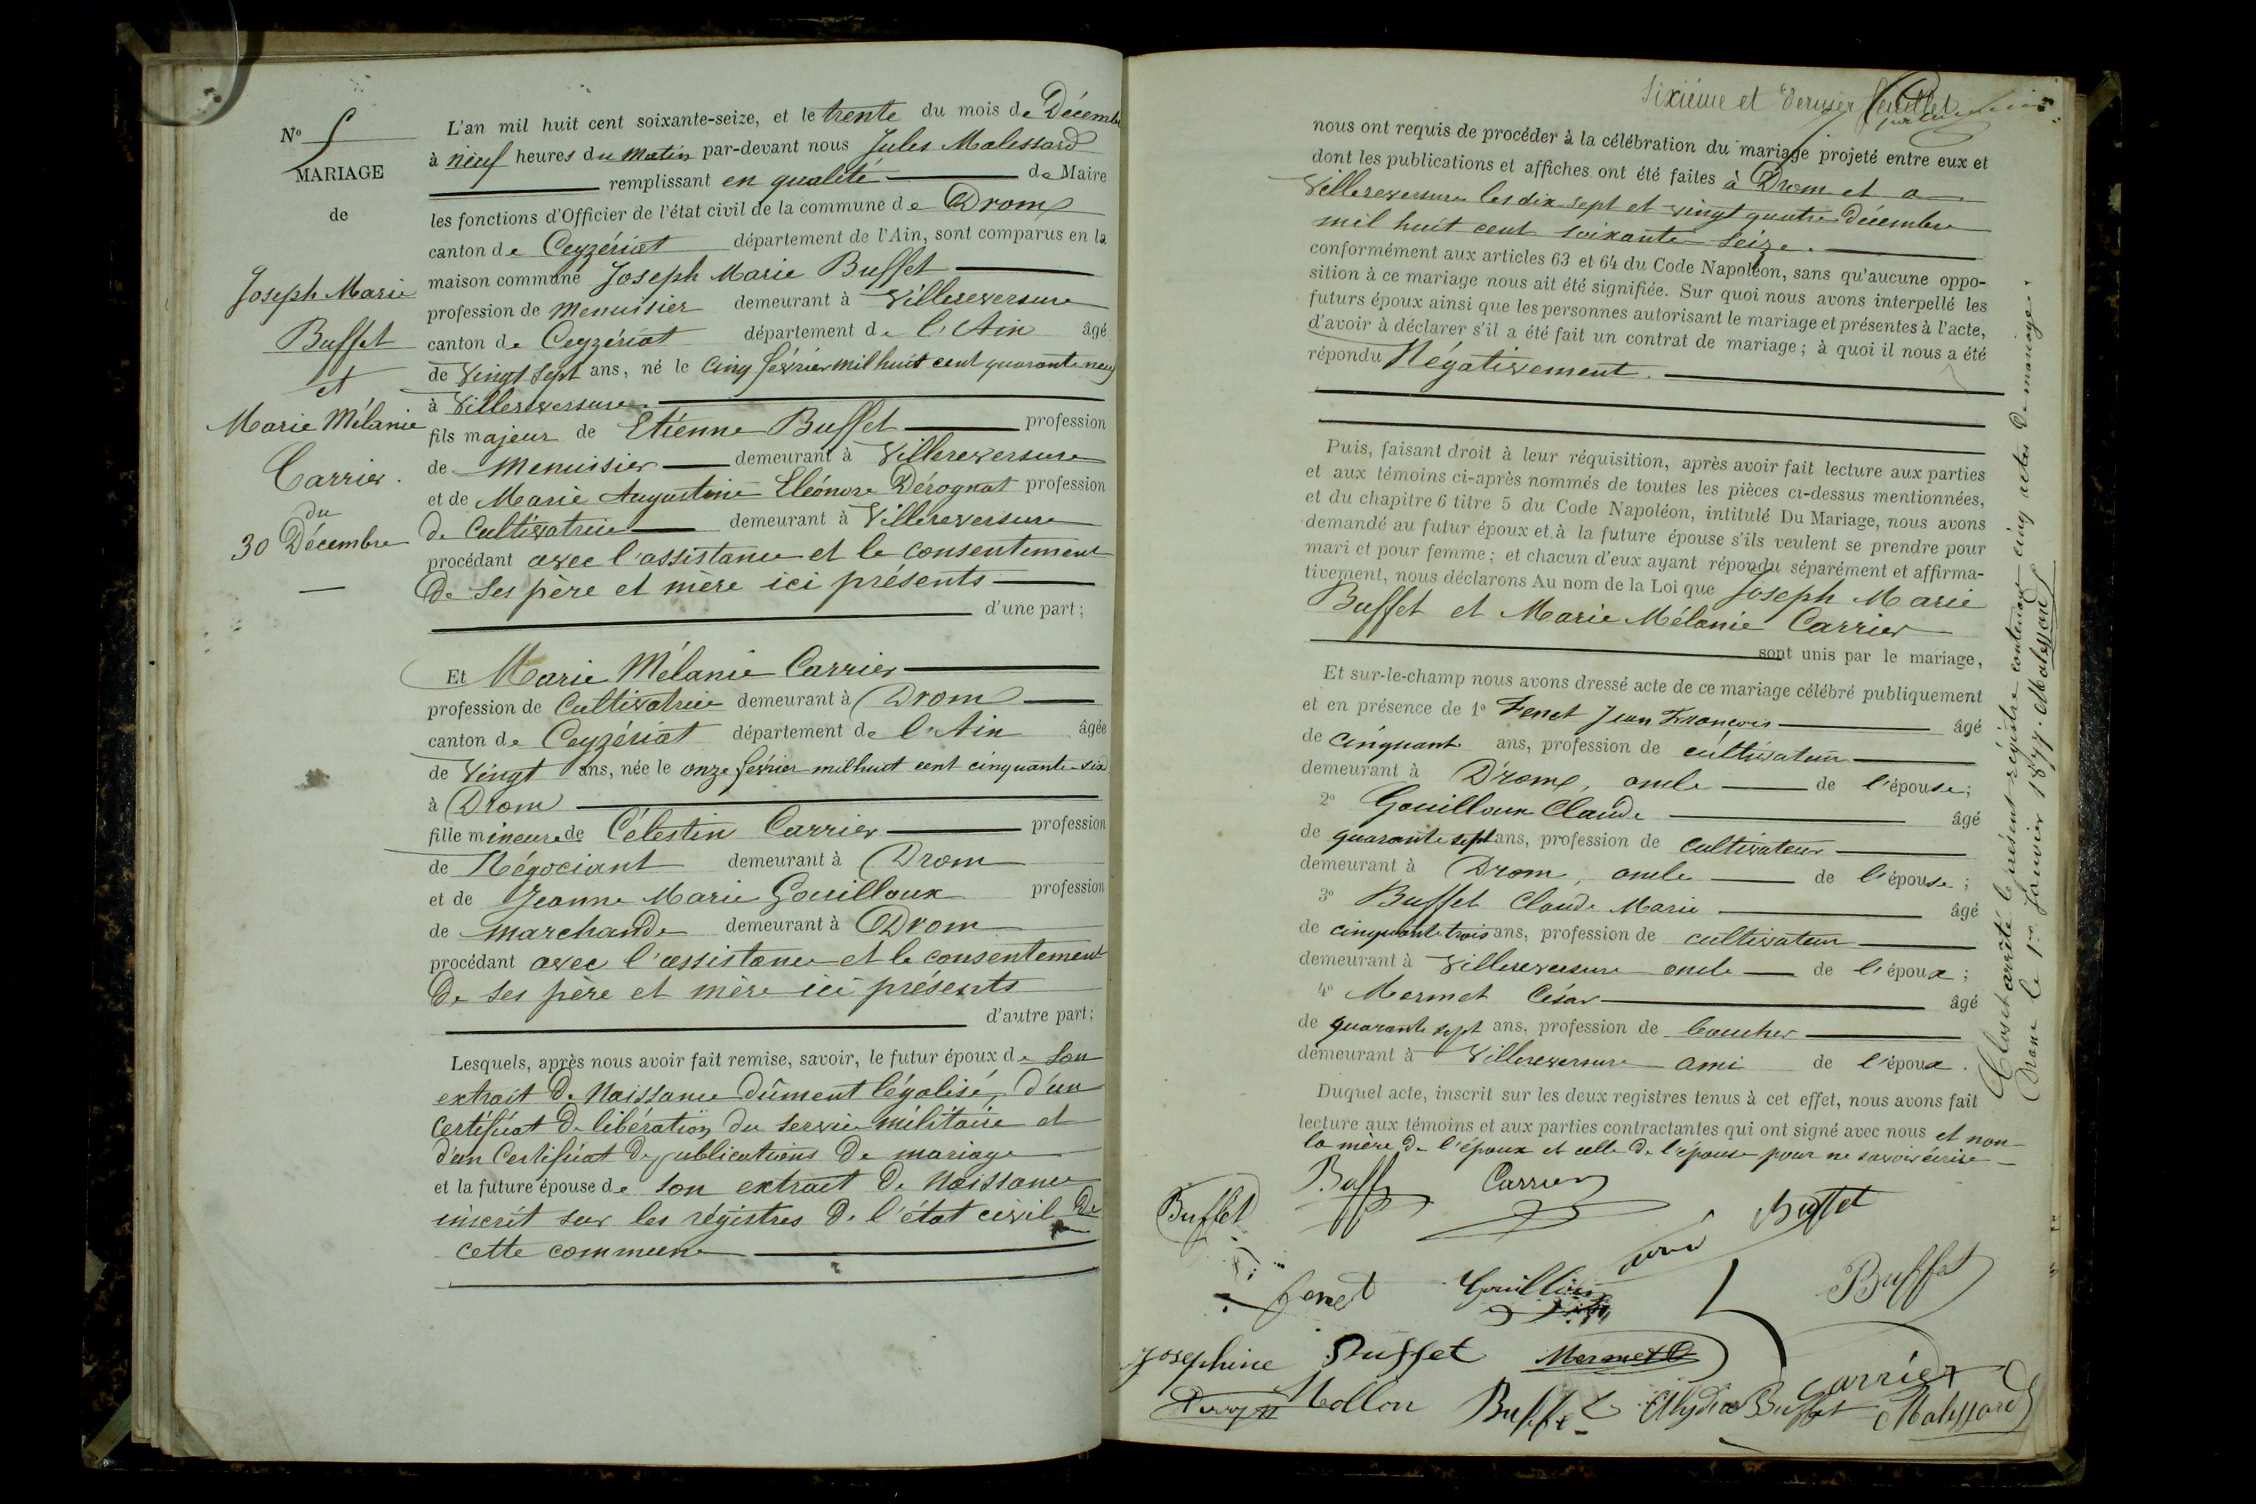 N° 5
MARIAGE
de
Joseph Marie
Buffet
et
Marie Mélanie
Carrier.
du
30 Décembre
L'an mil huit cent soixante-seize, et le trente du mois de Décembre
à neuf heures du matin par-devant nous Jules Malessard
remplissant en qualité de Maire
les fonctions d'Officier de l'état civil de la commune de Drom
canton de Ceyzériat département de l'Ain, sont comparus en la
maison commune Joseph Marie Buffet
profession de menuisier demeurant à Villereversure
canton de Ceyzériat département de l'Ain âgé
de Vingt sept ans, né le cinq février mil huit cent quarante neuf
à Villereversure.
fils majeur de Etienne Buffet profession
de menuisier demeurant à Villereversure
et de Marie Augustine Eléonore Dérognat profession
de Cultivatrice demeurant à Villereversure
procédant avec l'assistance et le consentement
de ses père et mère ici présents
d'une part;
Et Marie Mélanie Carrier
profession de Cultivatrice demeurant à Drom
canton de Ceyzériat département de l'Ain âgée
de Vingt ans, née le onze février mil huit cent cinquante-six
à Drom
fille mineure de Célestin Carrier profession
de Négociant demeurant à Drom
et de Jeanne Marie Gouilloux profession
de marchande demeurant à Drom
procédant avec l'assistance et le consentement
de ses père et mère ici présents
d'autre part;
Lesquels, après nous avoir fait remise, savoir, le futur époux de son
extrait de Naissance dûment légalisé, d'un
certificat de libération du service militaire et
d'un Certificat de publications de mariage
et la future épouse de son extrait de Naissance
inscrit sur les régistres de l'état civil de
cette commune
Sixième et dernier feuillet
nous ont requis de procéder à la célébration du mariage projeté entre eux et
dont les publications et affiches ont été faites à Drom et a
Villereversure les dix sept et vingt quatre décembre
mil huit cent soixante seize.
conformément aux articles 63 et 64 du Code Napoléon, sans qu'aucune oppo-
sition à ce mariage nous ait été signifiée. Sur quoi nous avons interpellé les
futurs époux ainsi que les personnes autorisant le mariage et présentes à l'acte,
d'avoir à déclarer s'il a été fait un contrat de mariage; à quoi il nous a été
répondu Négativement.
Puis, faisant droit à leur réquisition, après avoir fait lecture aux parties
et aux témoins ci-après nommés de toutes les pièces ci-dessus mentionnées,
et du chapitre 6 titre 5 du Code Napoléon, intitulé Du Mariage, nous avons
demandé au futur époux et à la future épouse s'ils veulent se prendre pour
mari et pour femme; et chacun d'eux ayant répondu séparément et affirma-
tivement, nous déclarons Au nom de la Loi que Joseph Marie
Buffet et Marie Mélanie Carrier
sont unis par le mariage,
Et sur-le-champ nous avons dressé acte de ce mariage célébré publiquement
et en présence de 1° Fenet Jean François âgé
de cinquant ans, profession de cultivateur
demeurant à Drom, oncle de l'épouse;
2° Gouilloux Claude âgé
de quarante sept ans, profession de cultivateur
demeurant à Drom, oncle de l'épouse;
3° Buffet Claude Marie âgé
de cinquante trois ans, profession de cultivateur
demeurant à Villereversure oncle de l'époux;
4° Mermet César âgé
de quarante sept ans, profession de boucher
demeurant à Villereversure ami de l'époux.
Duquel acte, inscrit sur les deux registres tenus à cet effet, nous avons fait
lecture aux témoins et aux parties contractantes qui ont signé avec nous et non
la mère de l'époux et celle de l'épouse pour ne savoir écrire
Buffet Carrier
Buffet Buffet
fenet Gouilloux Buffet
Josephine Buffet Mermet Carrier
Mollon Buffet Buffet Malessard
Clos et arrêté le présent régistre contenant cinq actes de mariage.
Drom le 1er Janvier 1877. Malessard